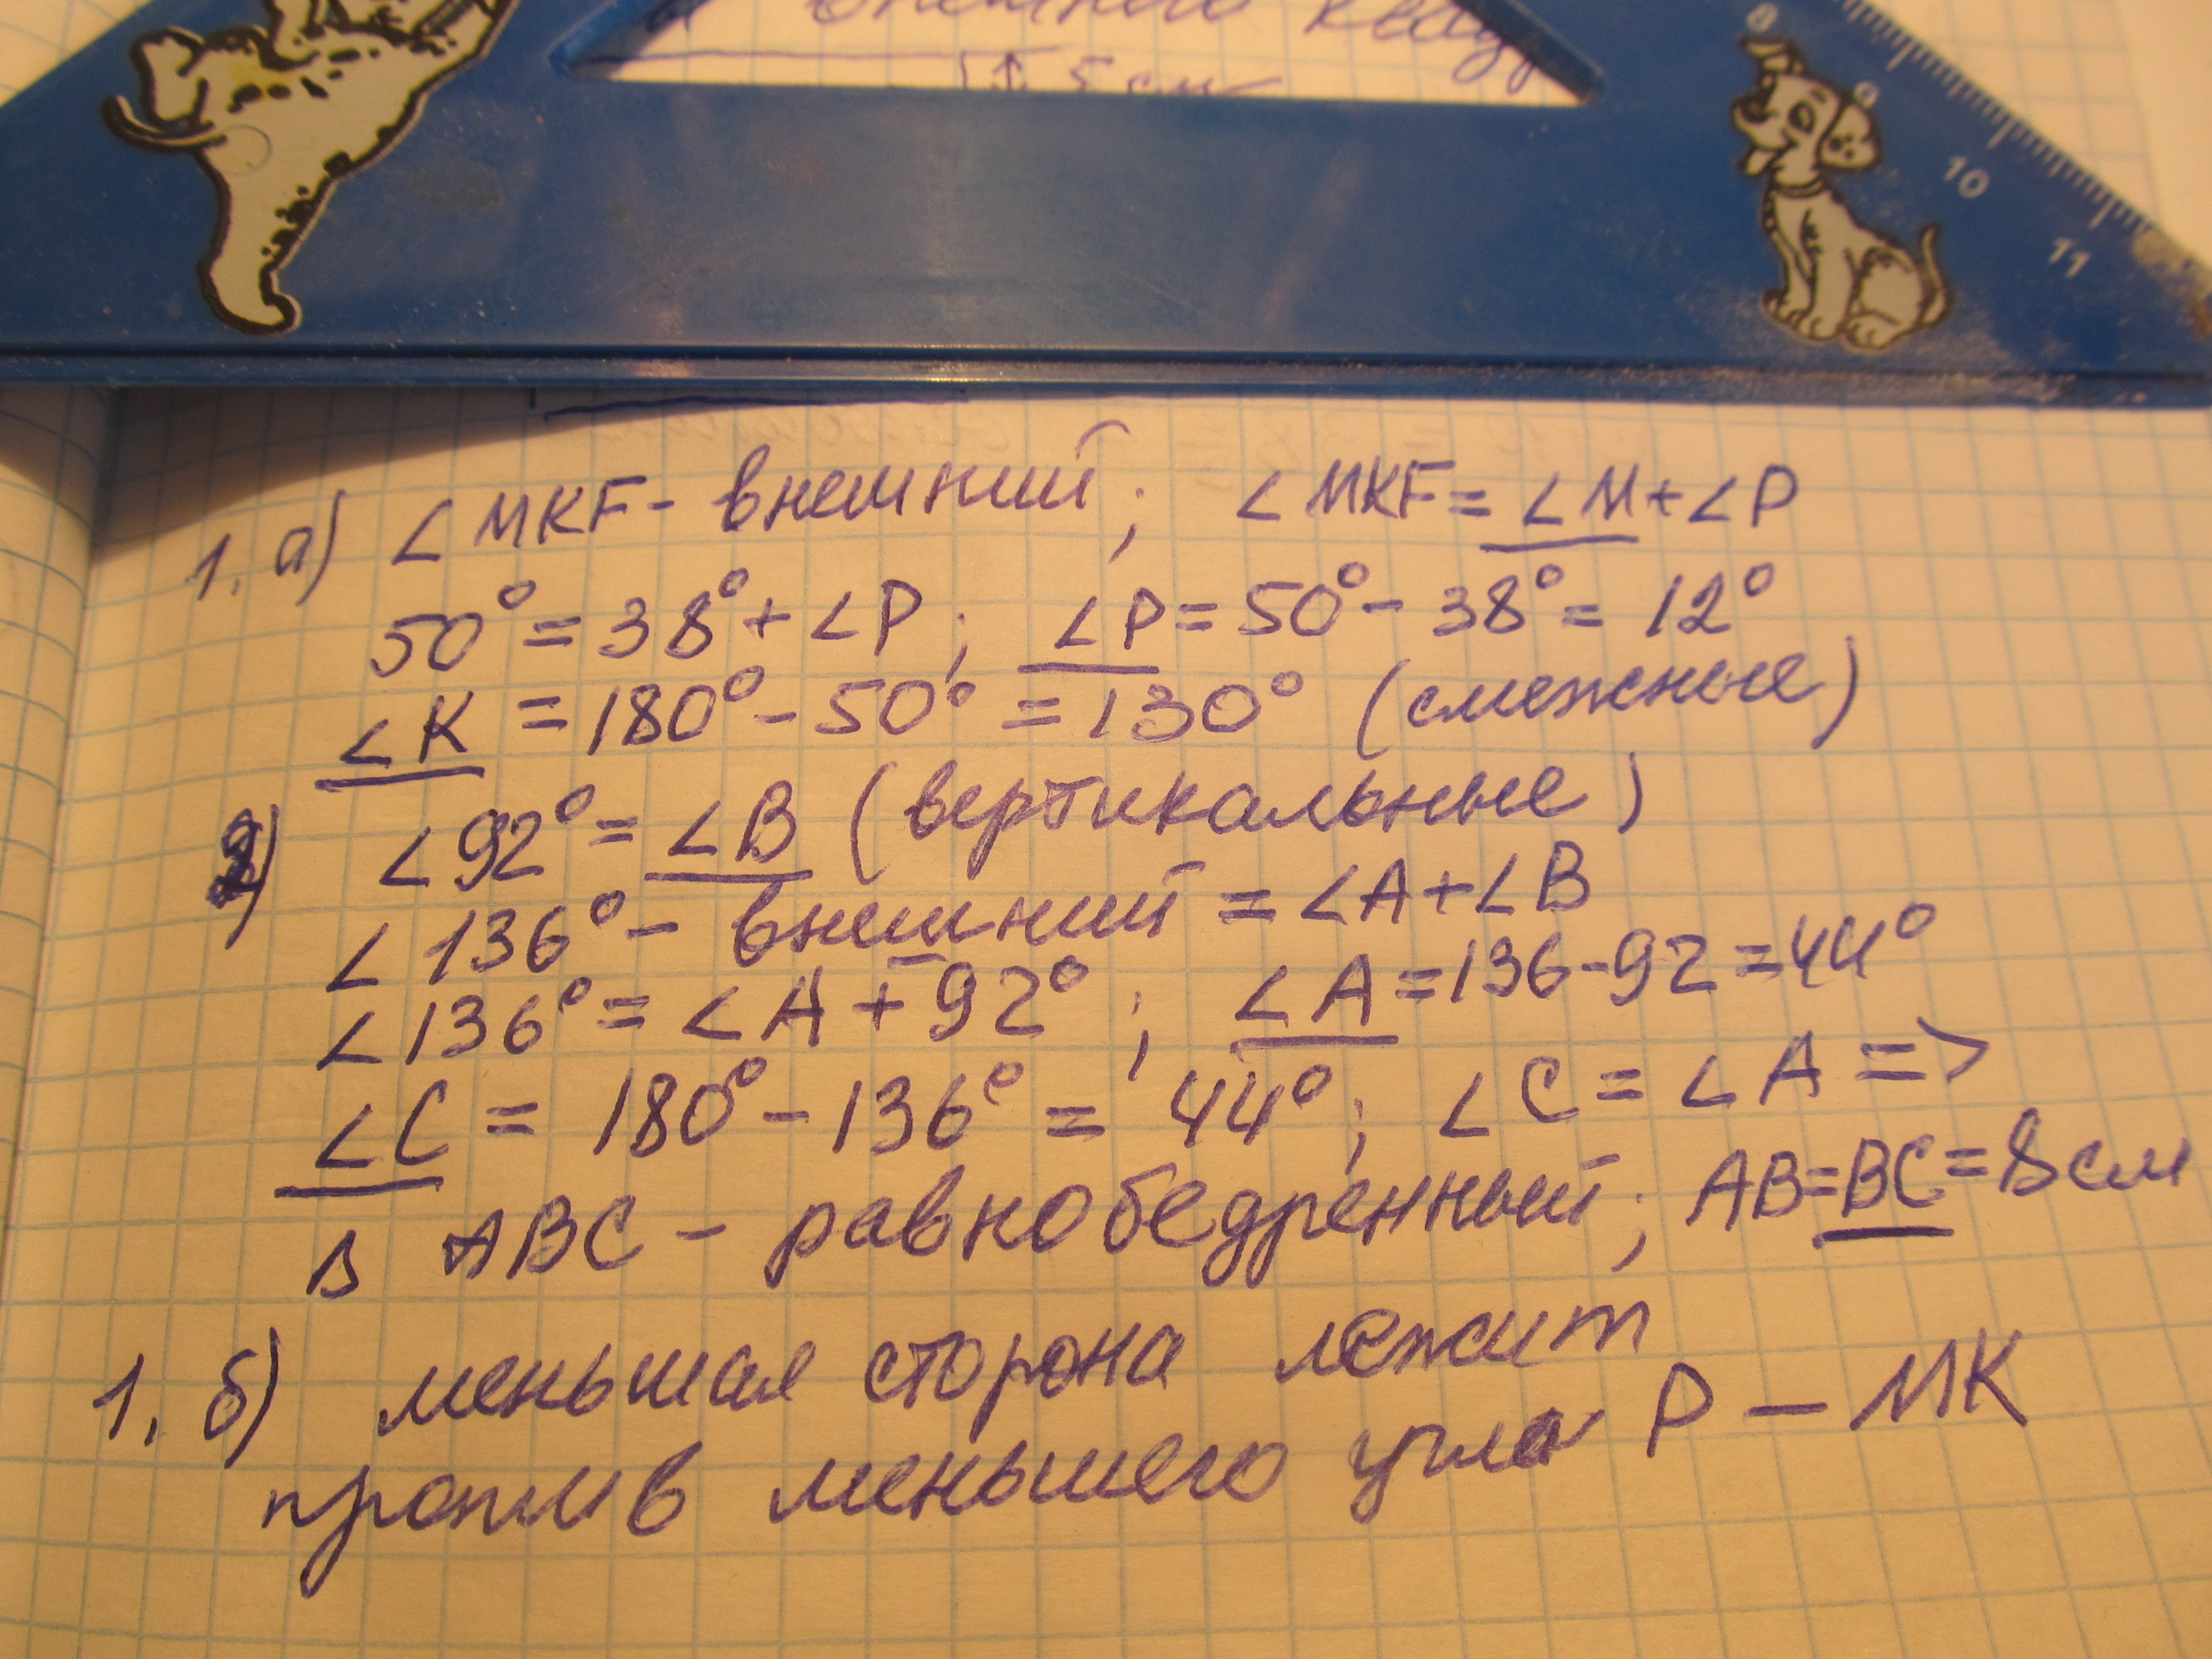 внешнего квад
5 см
8
9
10
11
1. а) ∠MKF - внешний; ∠MKF = ∠M + ∠P
50° = 38° + ∠P; ∠P = 50° - 38° = 12°
∠K = 180° - 50° = 130° (смежные)
2) ∠92° = ∠B (вертикальные)
∠136° - внешний = ∠A + ∠B
∠136° = ∠A + 92°; ∠A = 136 - 92 = 44°
∠C = 180° - 136° = 44°; ∠C = ∠A =>
△ ABC - равнобедренный; AB = BC = 8 см
1. б) меньшая сторона лежит
против меньшего угла P — MK